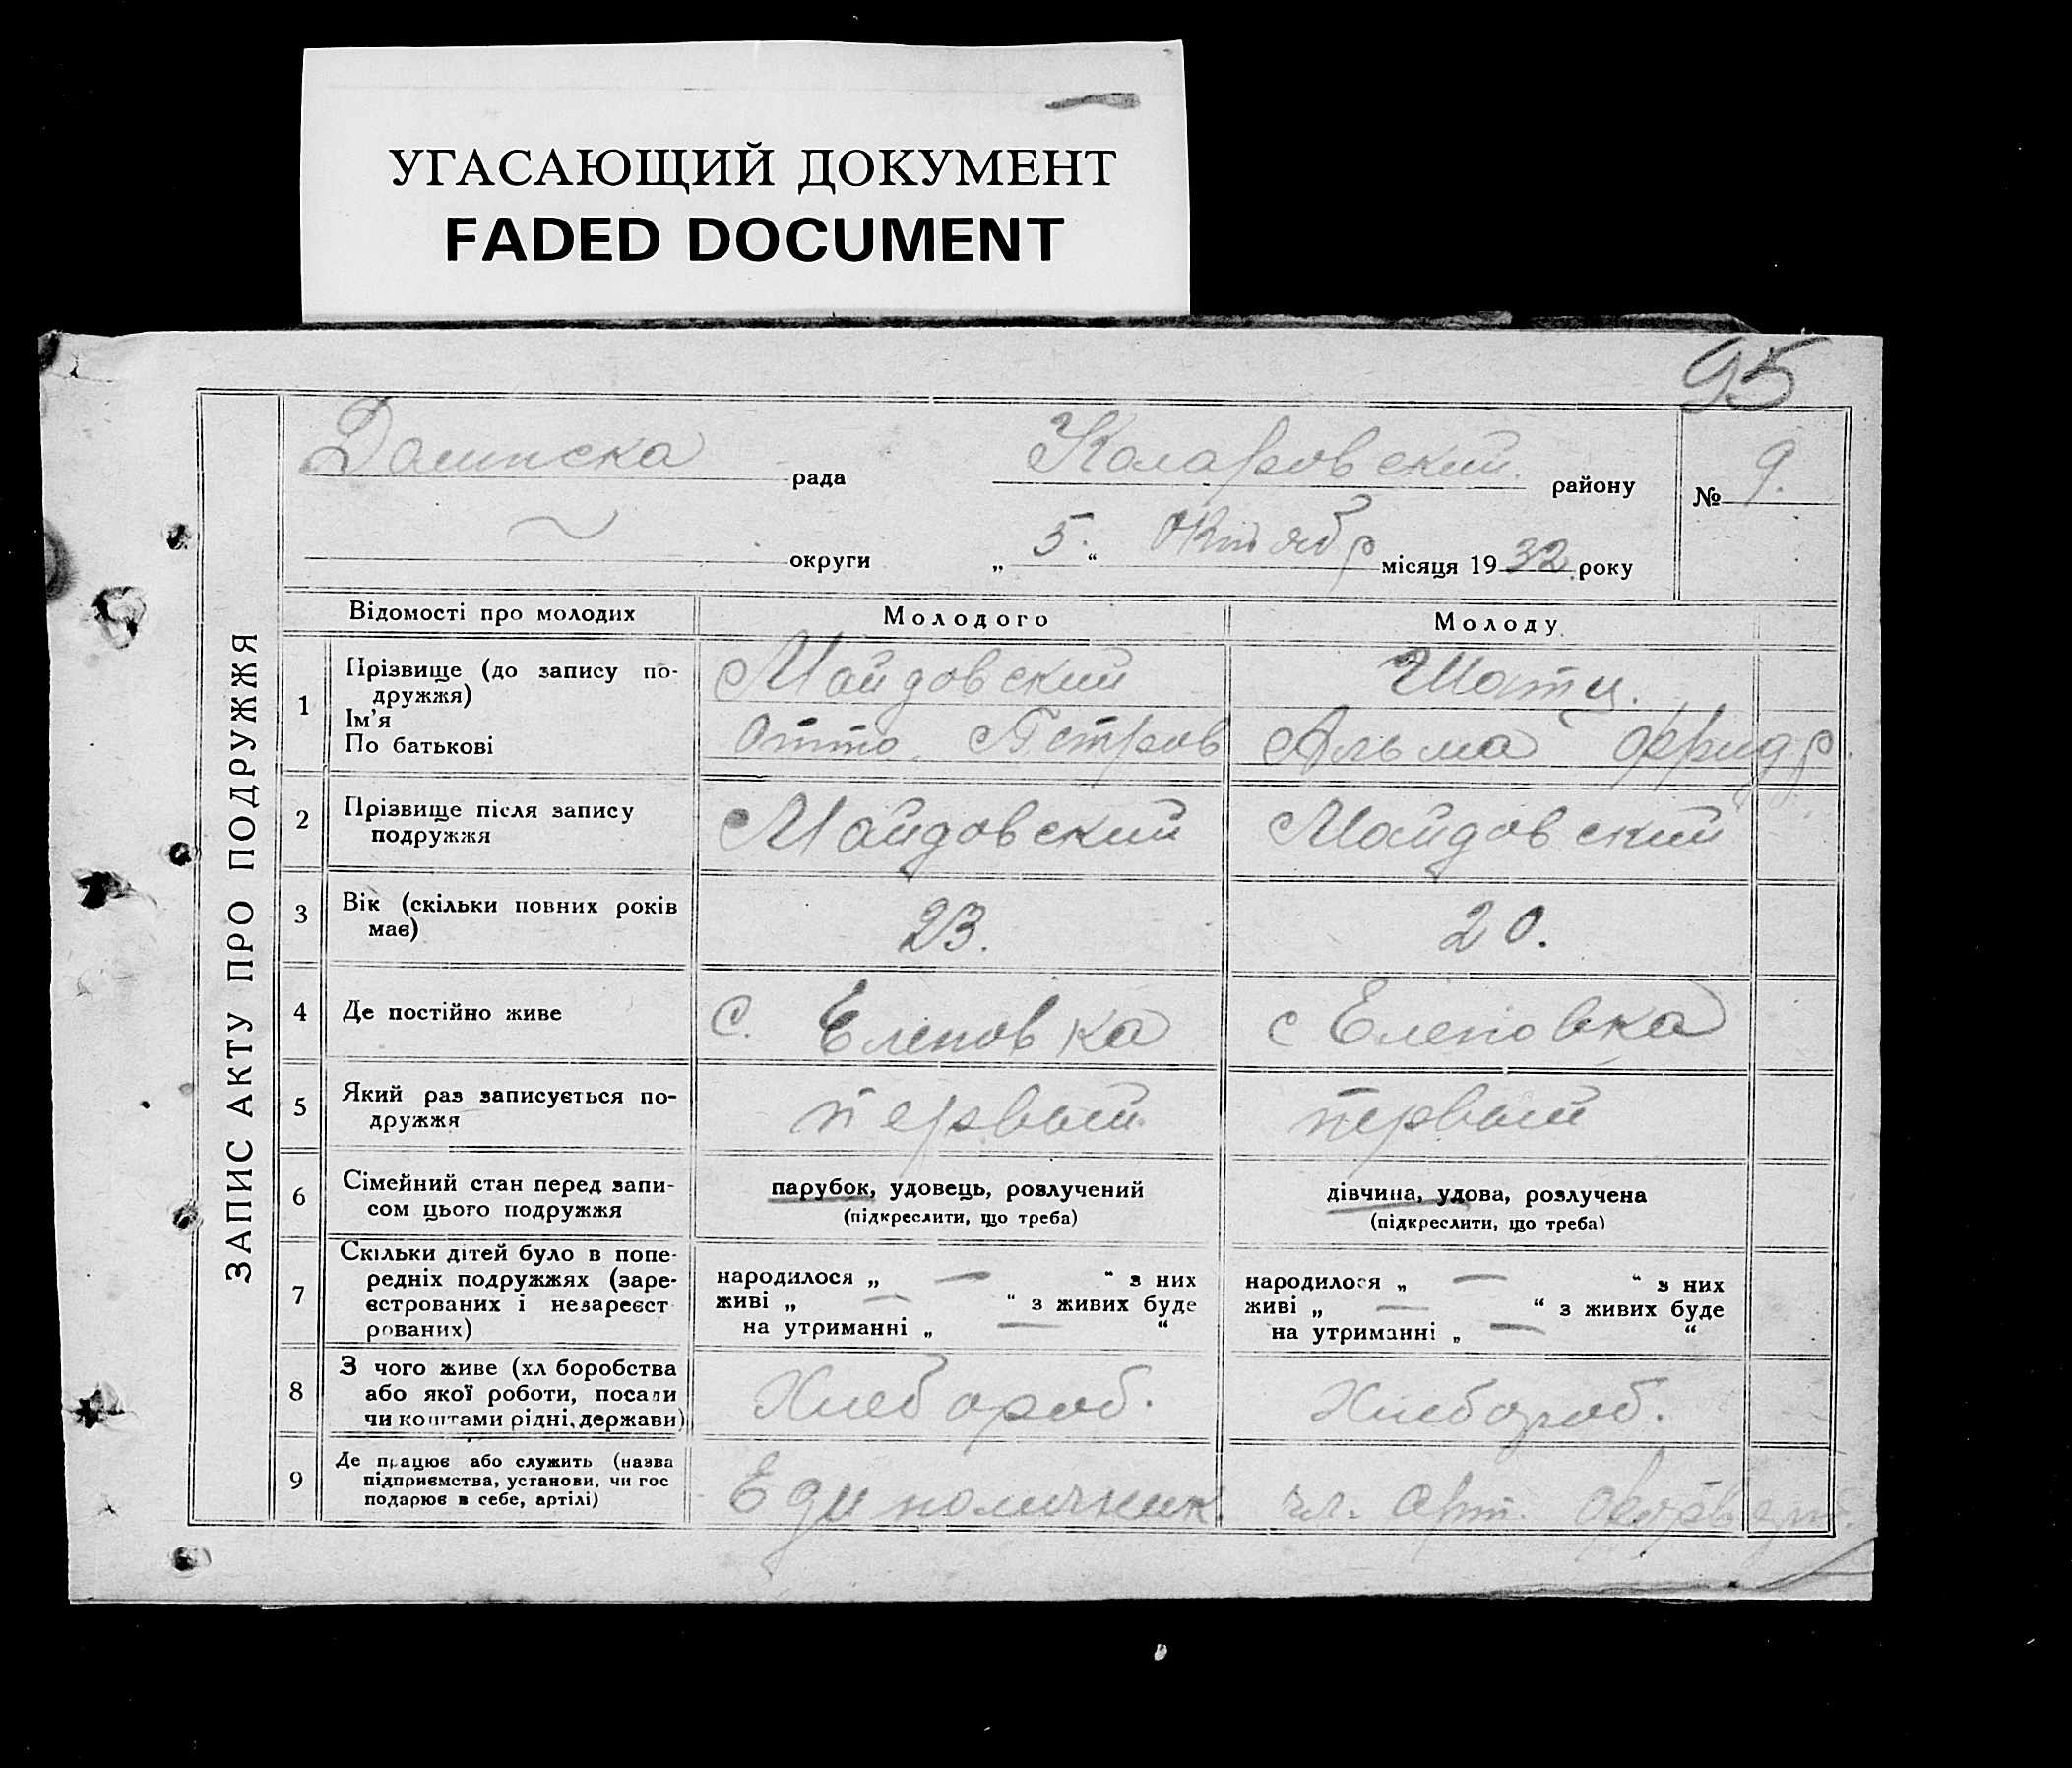 УГАСАЮЩИЙ ДОКУМЕНТ
FADED DOCUMENT
95
ЗАПИС АКТУ ПРО ПОДРУЖЖЯ
Долинска рада Коларовский району № 9.
округи „ 5. “ Октябр місяця 19 32 року
Відомості про молодих Молодого Молоду
1 Прізвище (до запису по-
дружжя) Майдовский Шатц.
Ім'я
По батькові Отто Петров Альма Фридр.
2 Прізвище після запису
подружжя Майдовский Майдовский
3 Вік (скільки повних років
має) 23. 20.
4 Де постійно живе с. Еленовка с Еленовка
5 Який раз записується по-
дружжя первый первый
6 Сімейний стан перед запи-
сом цього подружжя
парубок, удовець, розлучений дівчина, удова, розлучена
(підкреслити, що треба) (підкреслити, що треба)
7 Скільки дітей було в попе-
редніх подружжях (заре-
єстрованих і незареєст
рованих)
народилося „ — “ з них народилося „ — “ з них
живі „ — “ з живих буде живі „ — “ з живих буде
на утриманні „ — “ на утриманні „ — “
8 З чого живе (хл боробства
або якої роботи, посади
чи коштами рідні, держави) Хлебороб. Хлебороб.
9 Де працює або служить (назва
підприємства, установи, чи гос
подарює в себе, артілі) Единоличник. чл. арт.